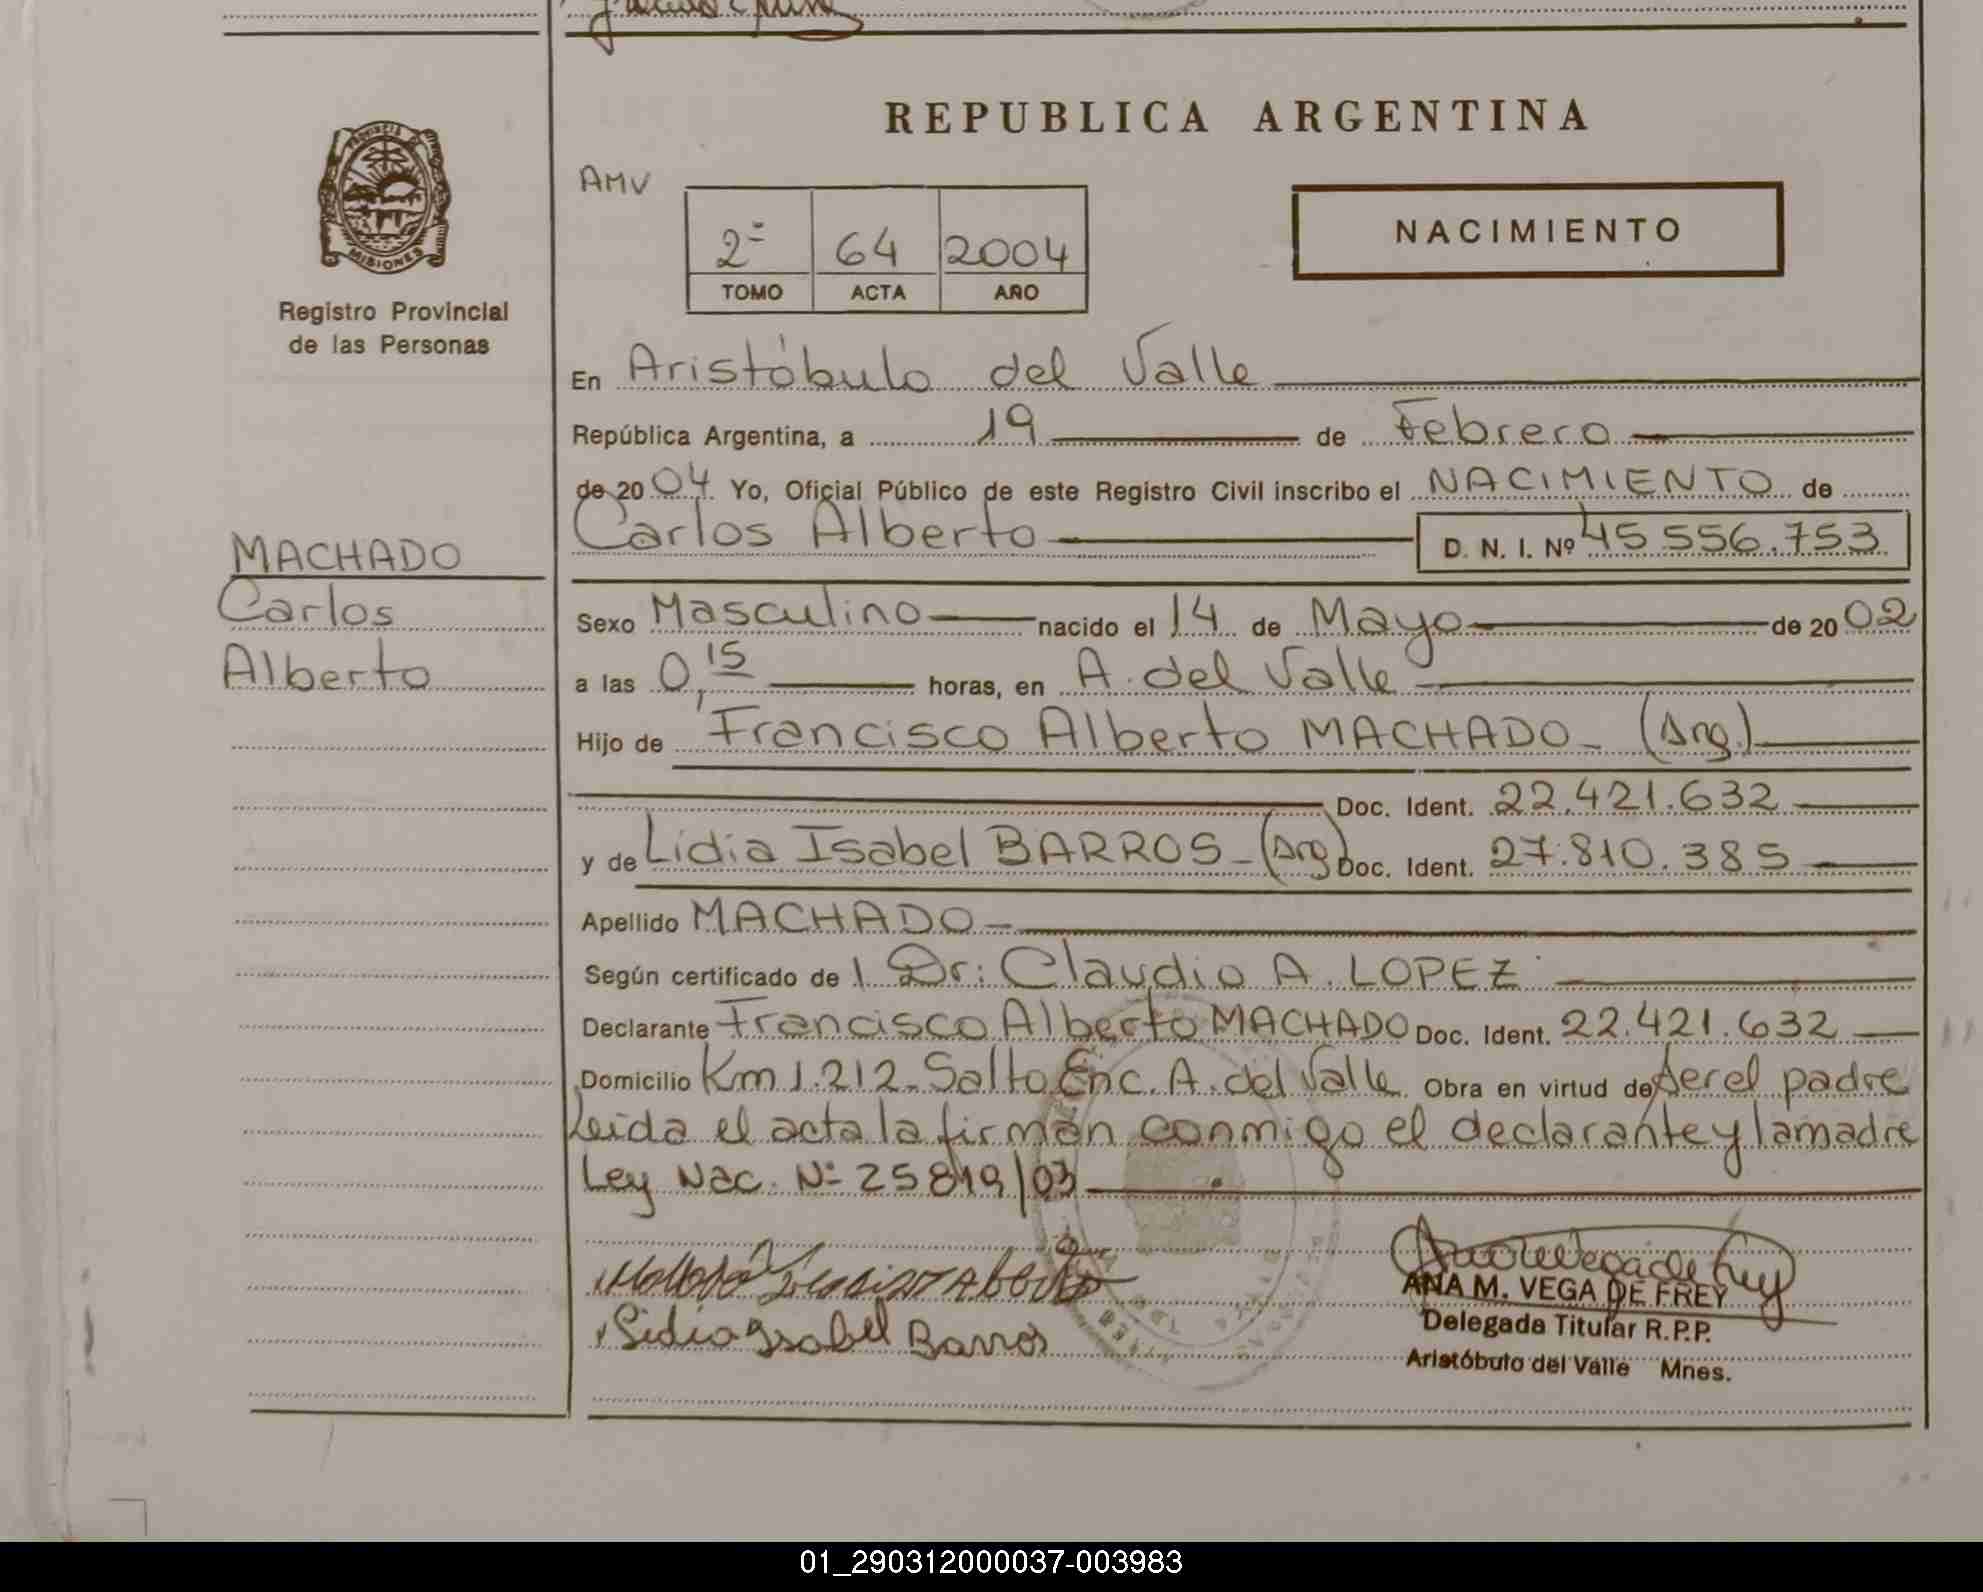 REPUBLICA ARGENTINA
PROVINCIA
MISIONES
Registro Provincial
de las Personas
AMV
2º 64 2004
TOMO ACTA AÑO
NACIMIENTO
En Aristóbulo del Valle
República Argentina, a 19 de Febrero
de 2004 Yo, Oficial Público de este Registro Civil inscribo el NACIMIENTO de
Carlos Alberto D. N. I. Nº 45 556.753
MACHADO
Carlos
Alberto
Sexo Masculino nacido el 14 de Mayo de 2002
a las 0,15 horas, en A. del Valle
Hijo de Francisco Alberto MACHADO - (Arg.)
Doc. Ident. 22.421.632
y de Lidia Isabel BARROS - (Arg) Doc. Ident. 27.810.385
Apellido MACHADO -
Según certificado de l Dr: Claudio A. LOPEZ
Declarante Francisco Alberto MACHADO Doc. Ident. 22.421.632
Domicilio Km 1.212 - Salto Enc. A. del Valle Obra en virtud de ser el padre
Leida el acta la firman conmigo el declarante y la madre
Ley Nac. Nº 25819/03
Lidia Isabel Barros
ANA M. VEGA DE FREY
Delegada Titular R.P.P.
Aristóbulo del Valle Mnes.
01_290312000037-003983